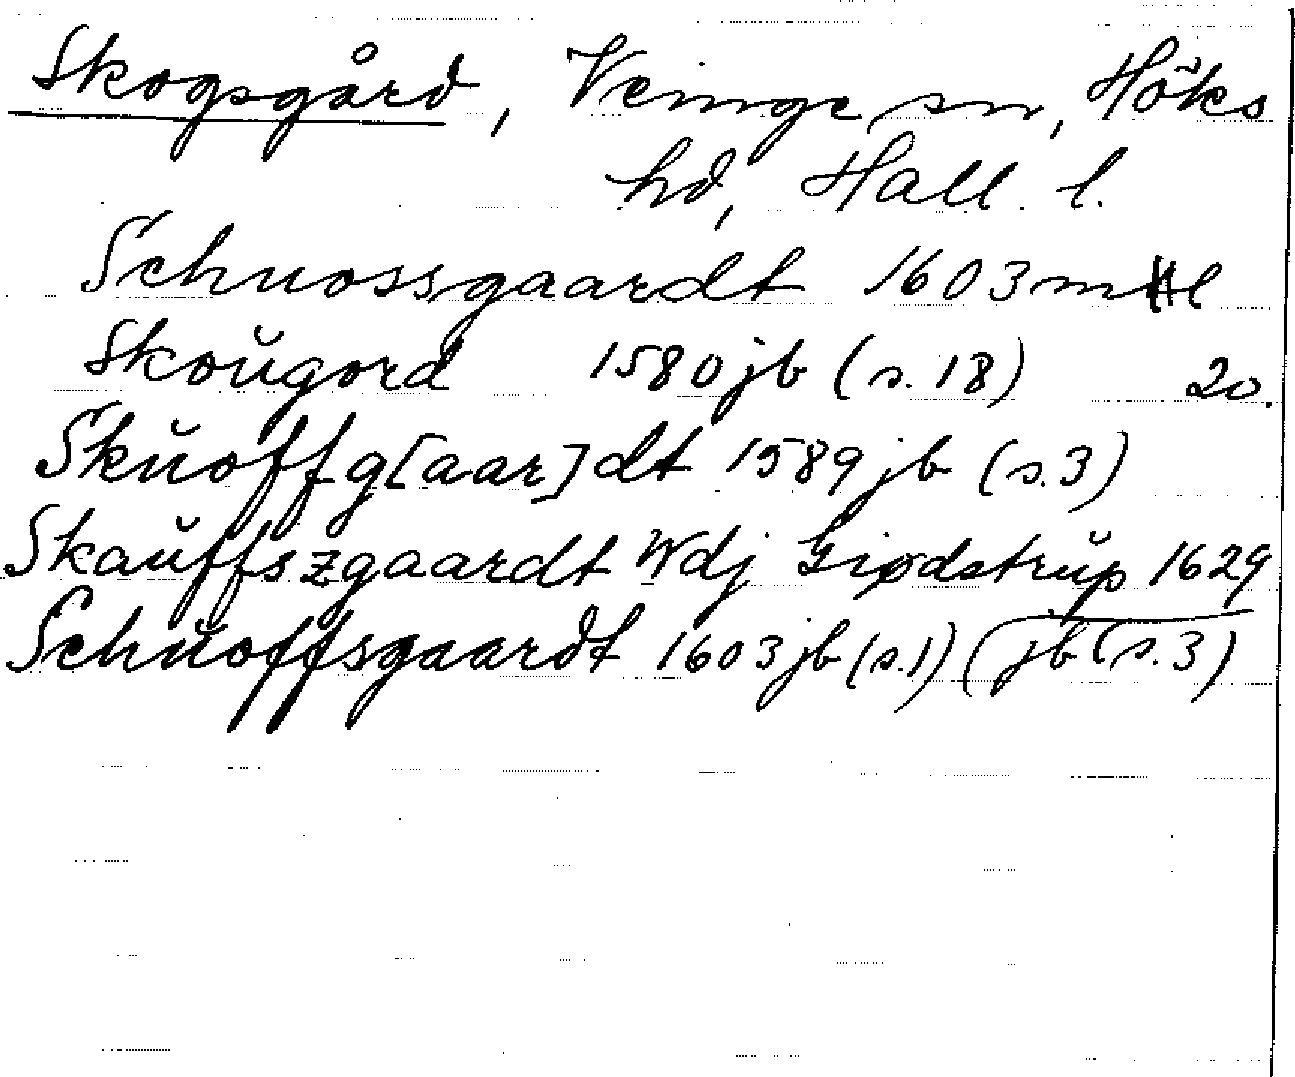 Skogsgård, Veinge sn, Höks
hd, Hall. l.
Schuossgaardt 1603 mtl
Skoŭgord 1580 jb (s. 18) 20.
Skŭoffg[aar]dt 1589 jb (s. 3)
Skaŭffszgaardt Wdj Giødstrŭp 1629
Schŭoffsgaardt 1603 jb (s. 1) (jb (s. 3)